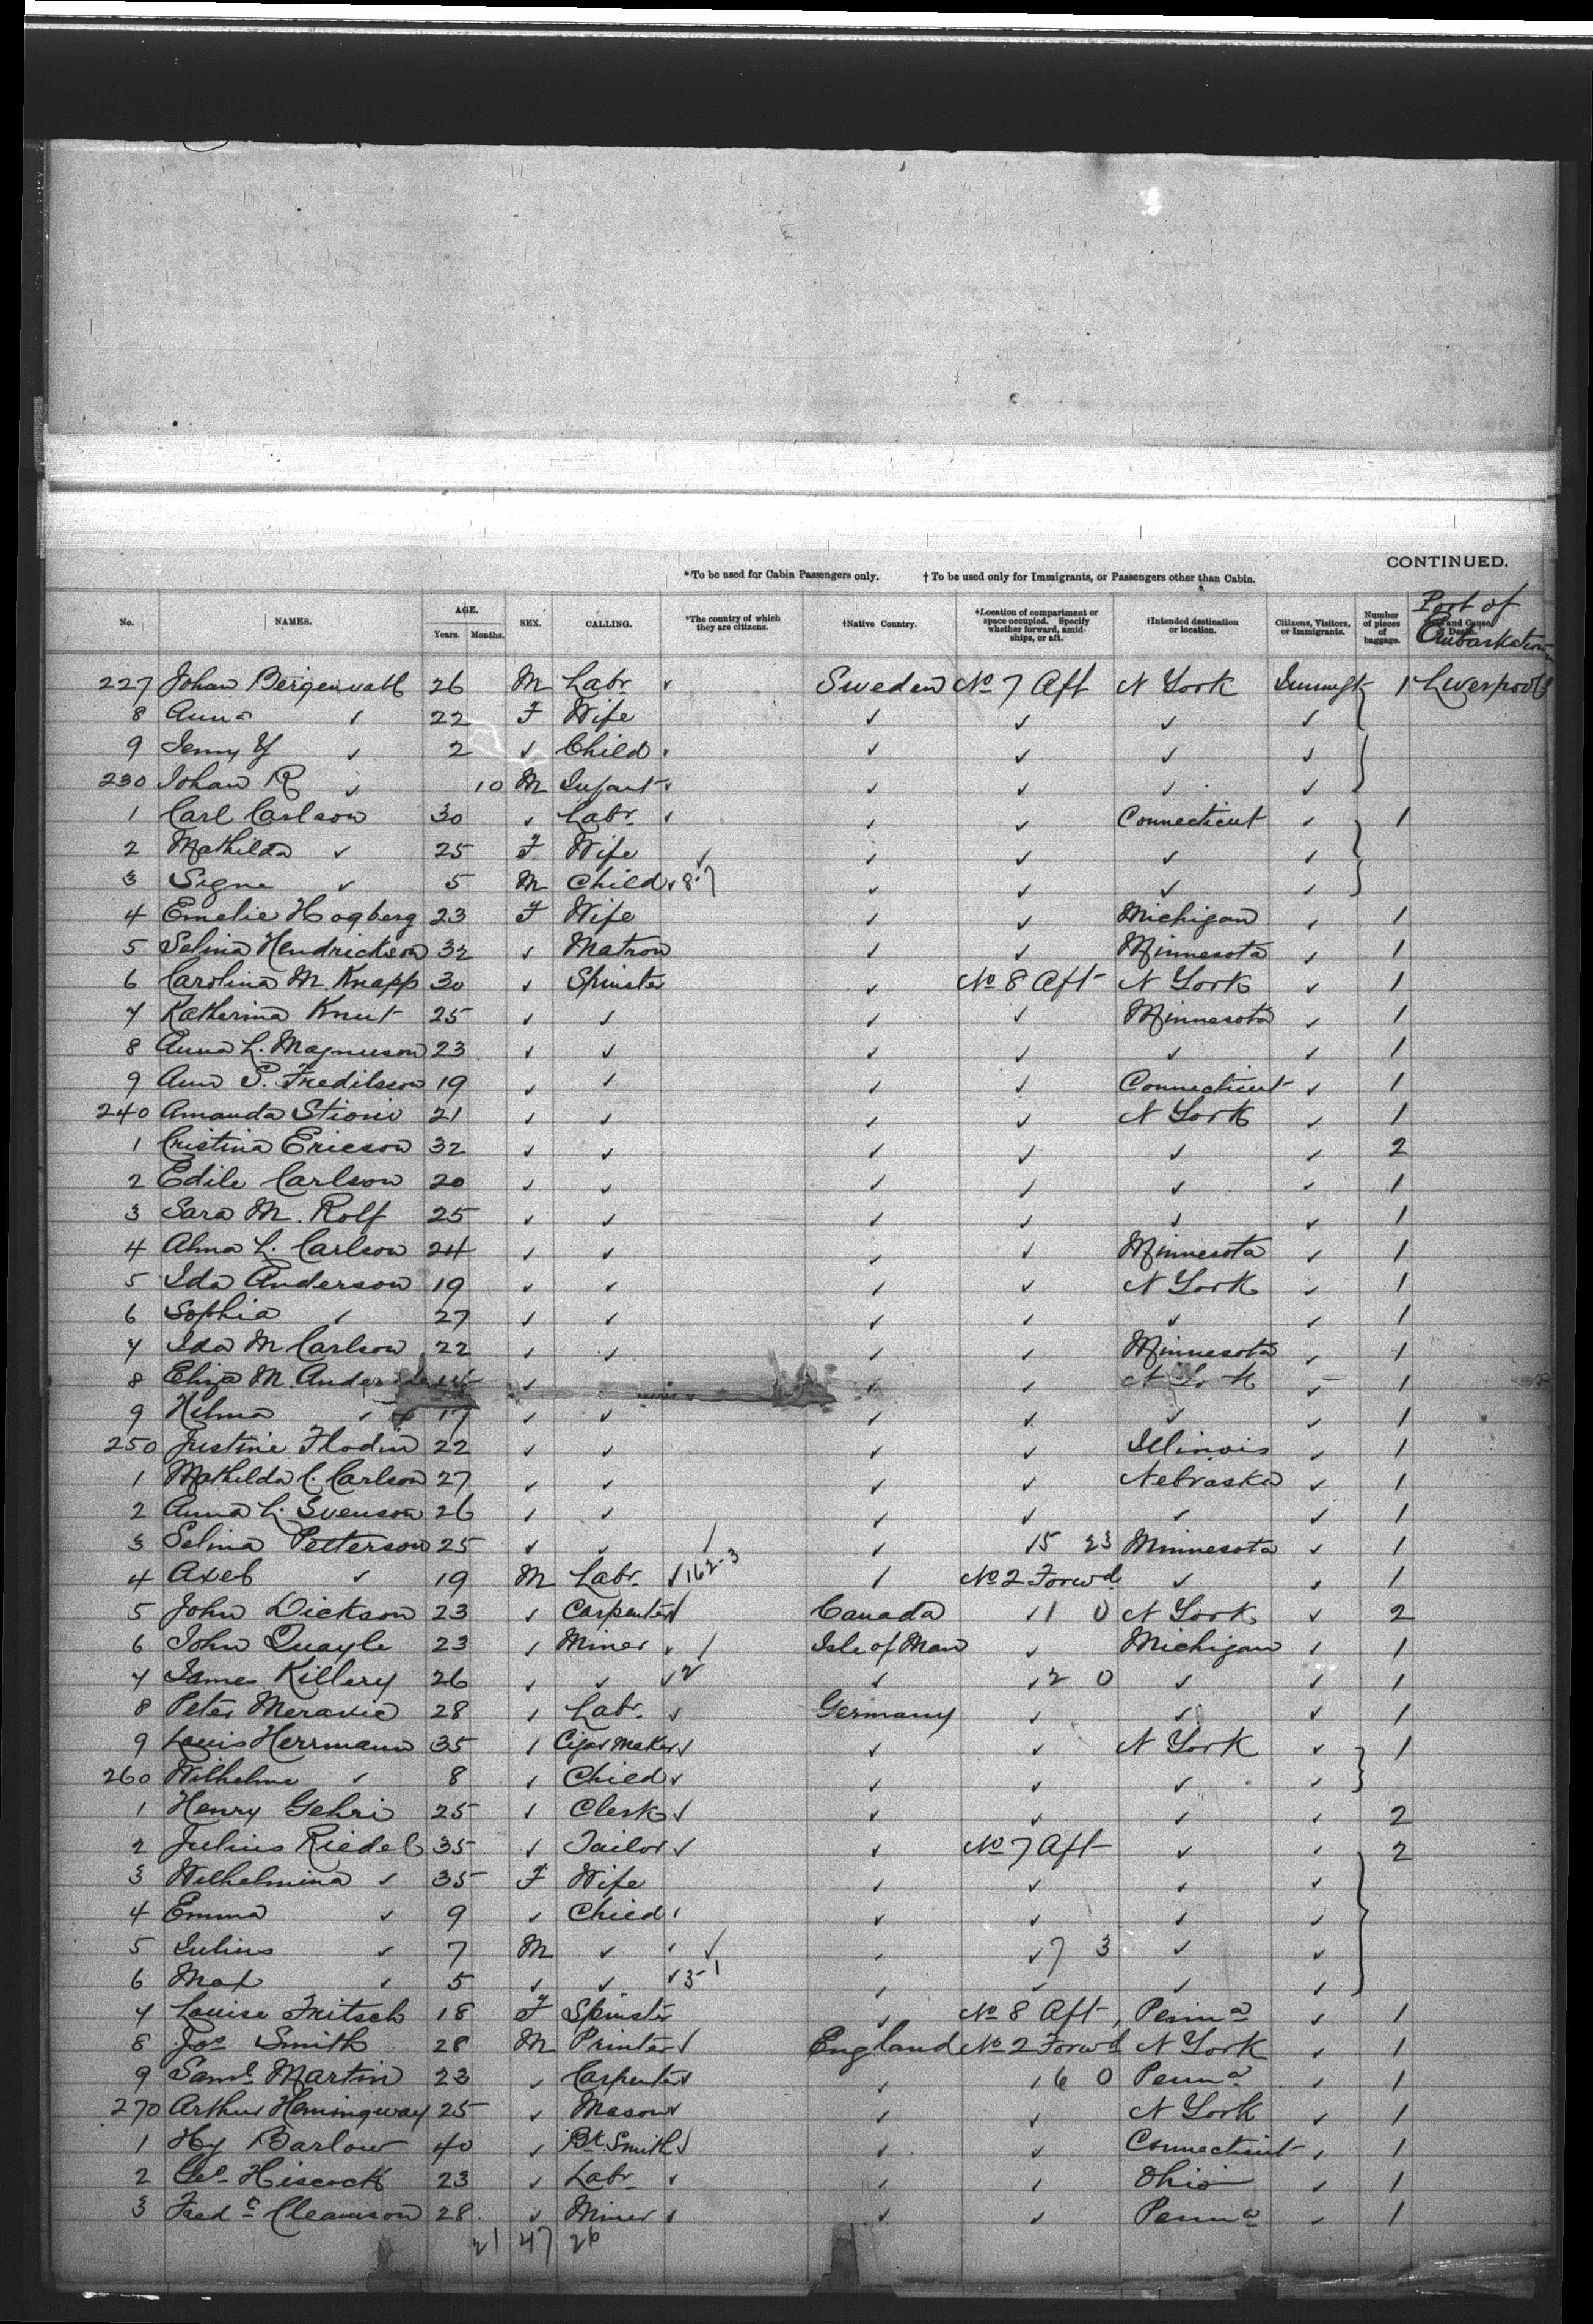 CONTINUED.
*To be used for Cabin Passengers only. † To be used only for Immigrants, or Passengers other than Cabin.
No. NAMES. AGE. Years. Months. SEX. CALLING. *The country of which they are citizens. †Native Country. †Location of compartment or space occupied. Specify whether forward, amidships, or aft. †Intended destination or location. Citizens, Visitors, or Immigrants. Number of pieces of baggage. Port of Embarkation
227 Johan Bergenvall 26 M Labr. ✓ Sweden No 7 Aft N York Immigt 1 Liverpool
8 Anna ✓ 22 F Wife ✓ ✓ ✓ ✓
9 Jenny Y ✓ 2 ✓ Child ✓ ✓ ✓ ✓
230 Johan R ✓ 10 M Infant ✓ ✓ ✓ ✓ ✓
1 Carl Carlson 30 ✓ Labr. ✓ ✓ ✓ Connecticut ✓ 1
2 Mathilda ✓ 25 F Wife ✓ ✓ ✓ ✓ ✓
3 Signe ✓ 5 M Child ✓ 8-7 ✓ ✓ ✓ ✓
4 Emelie Hogberg 23 F Wife ✓ ✓ Michigan ✓ 1
5 Selina Hendrickson 32 ✓ Matron ✓ ✓ Minnesota ✓ 1
6 Carolina M. Knapp 30 ✓ Spinster ✓ No 8 Aft N York ✓ 1
7 Katherina Knut 25 ✓ ✓ ✓ ✓ Minnesota ✓ 1
8 Anna L. Magnuson 23 ✓ ✓ ✓ ✓ ✓ ✓ 1
9 Ann S. Fredilsson 19 ✓ ✓ ✓ ✓ Connecticut ✓ 1
240 Amanda 21 ✓ ✓ ✓ ✓ N York ✓ 1
1 Cristina Ericson 32 ✓ ✓ ✓ ✓ ✓ ✓ 2
2 Edile Carlson 20 ✓ ✓ ✓ ✓ ✓ ✓ 1
3 Sara M. Rolf 25 ✓ ✓ ✓ ✓ ✓ ✓ 1
4 Alma L. Carlson 24 ✓ ✓ ✓ ✓ Minnesota ✓ 1
5 Ida Anderson 19 ✓ ✓ ✓ ✓ N York ✓ 1
6 Sophia ✓ 27 ✓ ✓ ✓ ✓ ✓ ✓ 1
7 Ida M Carlson 22 ✓ ✓ ✓ ✓ Minnesota ✓ 1
8 Eliza M. ✓ ✓ ✓ N York ✓ 1
9 Hilma ✓ 17 ✓ ✓ ✓ ✓ ✓ ✓ 1
250 Justine Flodin 22 ✓ ✓ ✓ ✓ Illinois ✓ 1
1 Mathilda C. Carlson 27 ✓ ✓ ✓ ✓ Nebraska ✓ 1
2 Anna L. Svenson 26 ✓ ✓ ✓ ✓ ✓ ✓ 1
3 Selina Petterson 25 ✓ ✓ ✓ ✓ 15 23 Minnesota ✓ 1
4 Axel ✓ 19 M Labr. ✓ 162-3 ✓ No 2 Forwd ✓ ✓ 1
5 John Dickson 23 ✓ Carpenter ✓ Canada ✓ 1 0 N York ✓ 2
6 John Quayle 23 ✓ Miner ✓ ✓ Isle of Man ✓ Michigan ✓ 1
7 James Killery 26 ✓ ✓ ✓ 2 ✓ ✓ 2 0 ✓ ✓ 1
8 Peter 28 ✓ Labr. ✓ Germany ✓ ✓ ✓ 1
9 Louis Herrmann 35 ✓ Cigar Maker ✓ ✓ ✓ N York ✓ 1
260 Wilhelm ✓ 8 ✓ Child ✓ ✓ ✓ ✓ ✓
1 Henry Gehri 25 ✓ Clerk ✓ ✓ ✓ ✓ ✓ 2
2 Julius Riedel 35 ✓ Tailor ✓ ✓ No 7 Aft ✓ ✓ 2
3 Wilhelmina ✓ 35 F Wife ✓ ✓ ✓ ✓
4 Emma ✓ 9 ✓ Child ✓ ✓ ✓ ✓ ✓
5 Julius ✓ 7 M ✓ ✓ ✓ ✓ ✓ 7 3 ✓ ✓
6 Max ✓ 5 ✓ ✓ ✓ 5-1 ✓ ✓ ✓ ✓
7 Louise Fritsch 18 F Spinster ✓ No 8 Aft Penna ✓ 1
8 Jos Smith 28 M Printer ✓ England No 2 Forwd N York ✓ 1
9 Saml Martin 23 ✓ Carpenter ✓ ✓ ✓ 6 0 Penna ✓ 1
270 Arthur Hemingway 25 ✓ Mason ✓ ✓ ✓ N York ✓ 1
1 Hy Barlow 40 ✓ Bk Smith ✓ ✓ ✓ Connecticut ✓ 1
2 Geo Hiscock 23 ✓ Labr. ✓ ✓ ✓ Ohio ✓ 1
3 Fredc Cleamson 28 ✓ Miner ✓ ✓ ✓ Penna ✓ 1
21 47 26